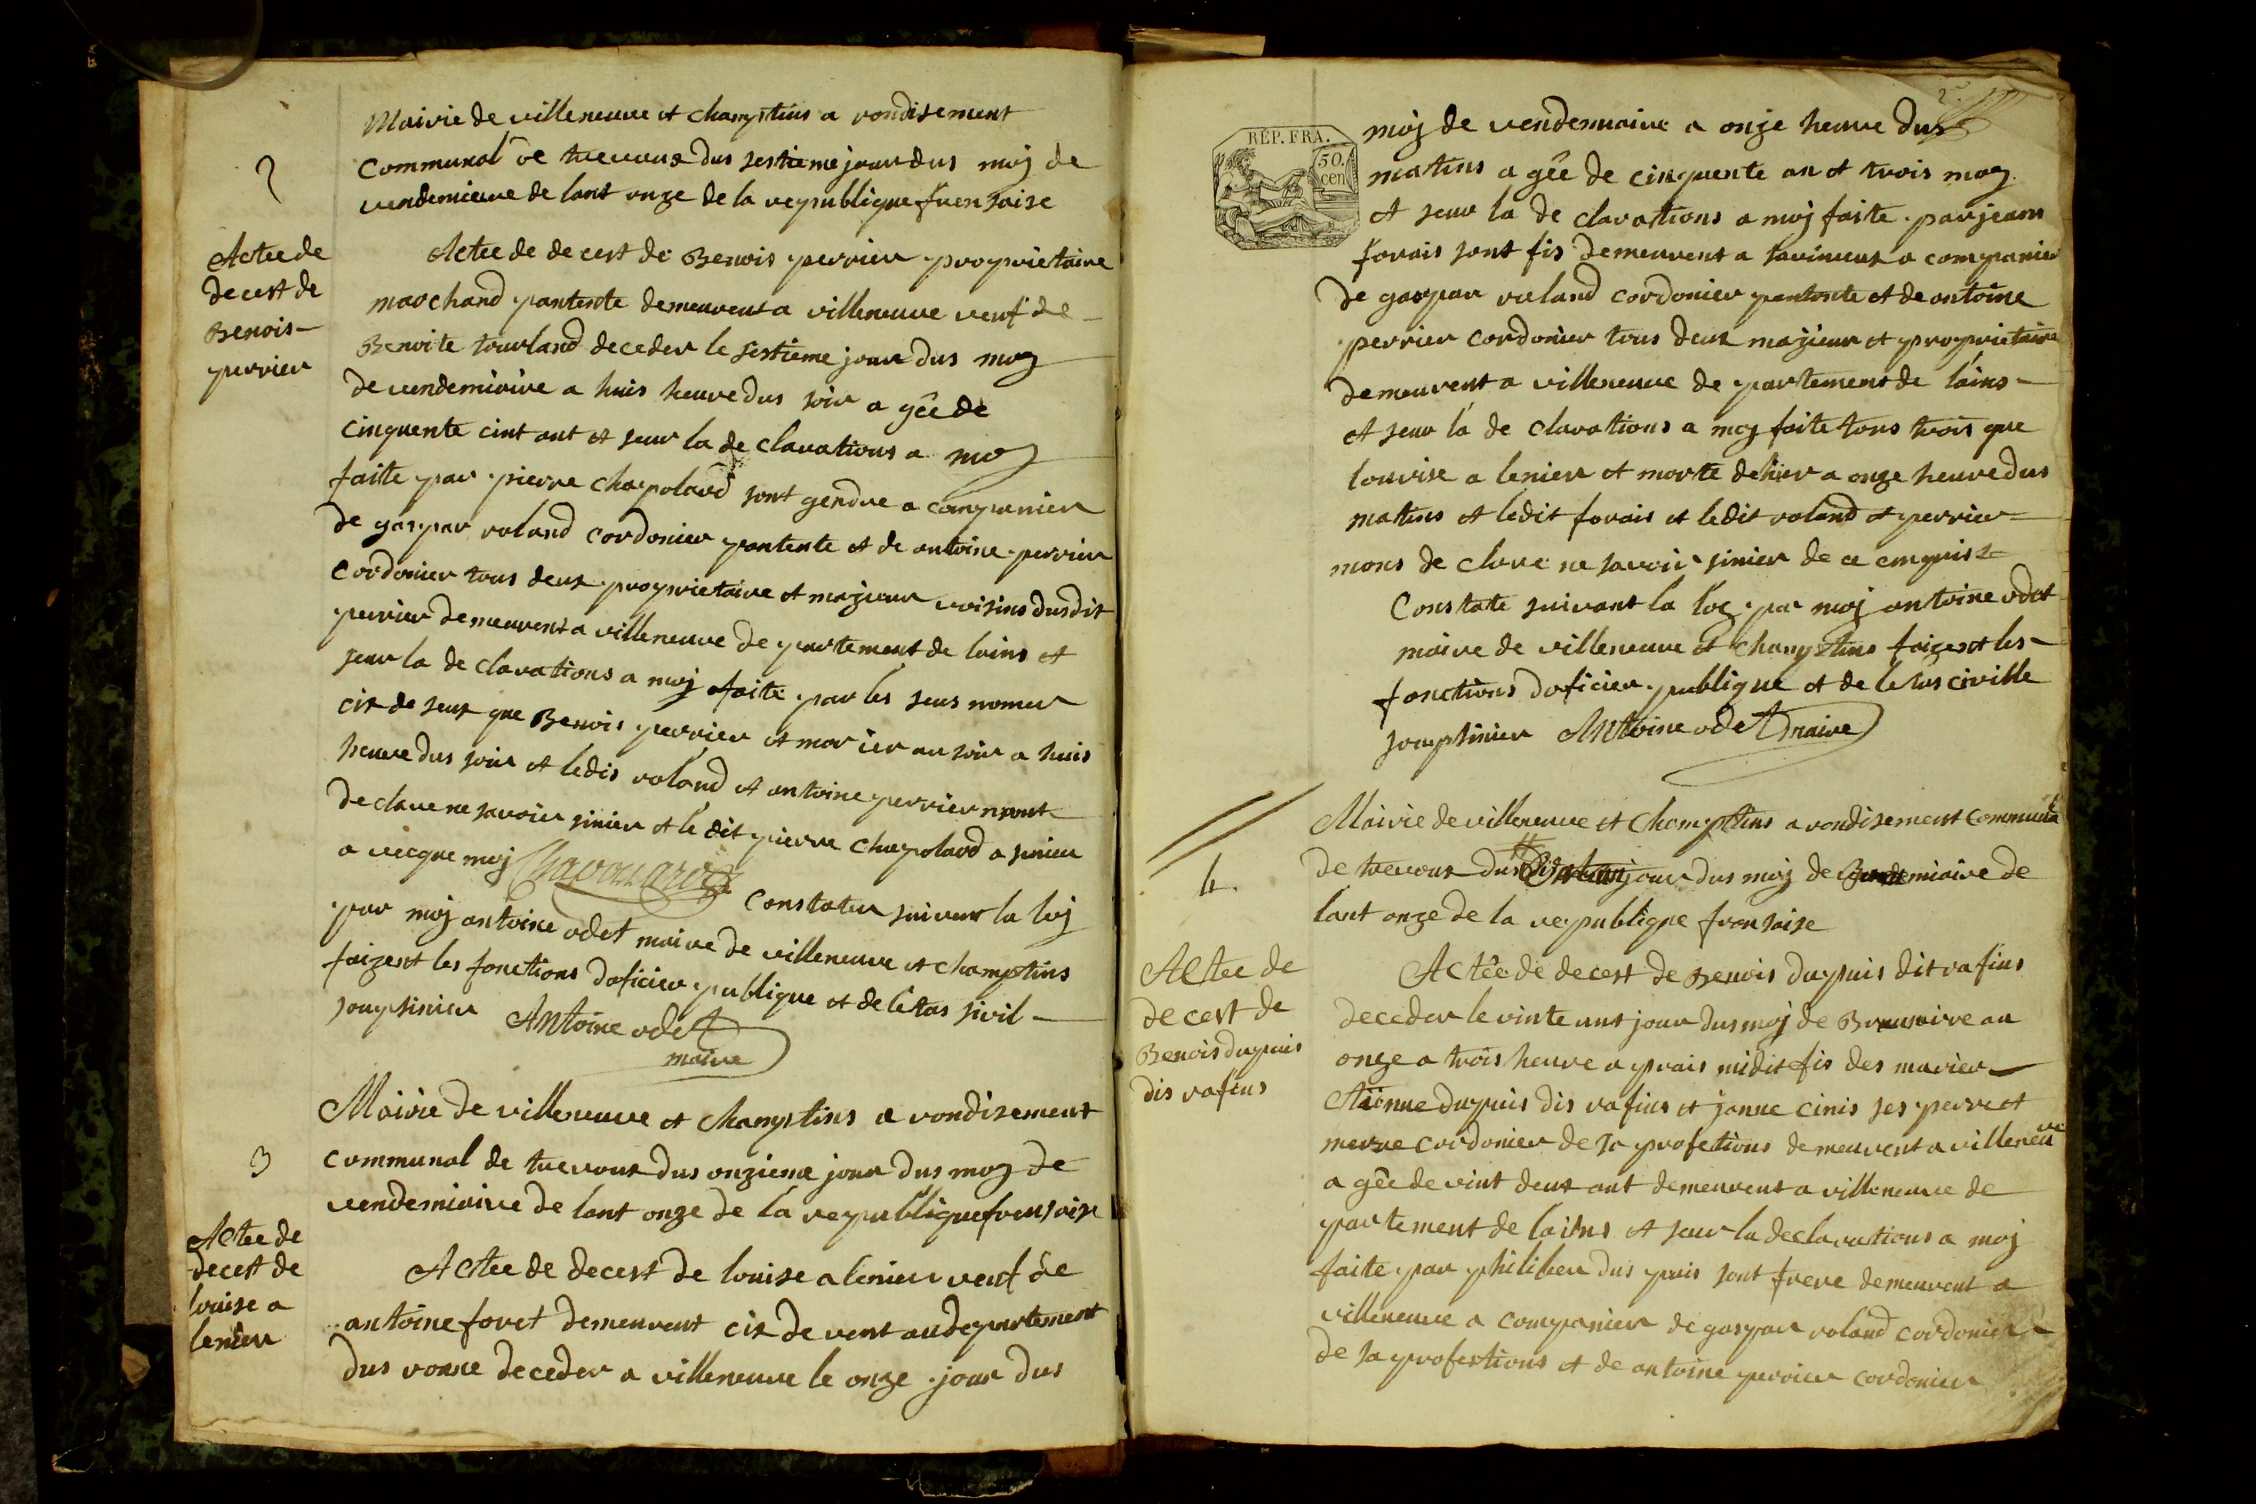 2
Mairie de villeneuve et champtins a rondisement
communal de trevous dus sestieme jour dus moj de
vendemieure de lant onze de la republique fransaise
Actee de
decest de
Benois
perrier
Actee de decest de Benois perrier proprietaire
marchand pantente demeurent a villeneuve veuf de
Benoite tourland deceder le sestieme jour dus moy
de vendemiaire a huis heure dus soir a gêe de
cinquente cint ant et seur la de clarations a moj
faite par pierre chapolard sont gendre a companier
de gaspar roland cordonier pantente et de antoine perrier
cordonier tous deus proprietaire et majeur voisins dusdit
perrier demeurent a villeneuve de partement de lains et
seur la de clarations a moj faite par les seus nomer
cis de seus que Benois perrier et mor ier au soir a huis
heure dus soir et ledis roland et antoine perrier nont
declare ne savoier sinier et le dit pierre chapolard a sinier
a vecque moj
constater suivent la loj
par moj antoine odet maire de villeneuve et champtins
faizent les fonctions doficier publique et de létas sivil
soupsinier Antoine odet
maire
3
Mairie de villeneuve et champtins a rondisement
communal de trevous dus onzieme jour dus moy de
vendemiaire de lant onze de la republique fransaise
Actee de
decest de
louise a
lenier
Actee de decest de louise a lenier veuf de
antoine foret demeurent cis de vent au departement
dus ronne deceder a villeneuve le onze jour dus
2
RÉP. FRA.
50.
cen
moj de vendemiaire a onze heure dus
matins a gêe de cinquente an et trois moy
et seur la de clarations a moj faite par jeans
forais sont fis demeurent a savinieux a companier
de gaspar roland cordonier pantente et de antoine
perrier cordonier tous deus majieur et proprietaire
demeurent a villeneuve de partement de lains
et seur la de clarations a moj faite tous trois que
louvise a lenier et morte dehier a onze heure dus
matins et ledit forais et ledit roland et perrier
mons de clare ne savoir sinier de ce enquis
Constate suivant la loy par moj antoine odet
maire de villeneuve et champtins faizent les
fonctions doficier publique et de létas civille
soupsinier Antoine odet maire
4.
Mairie de villeneuve et champtins a rondisement communal
de trevous dus jour dus moj de miaire de
lant onze de la republique fransaise
Actee de
decest de
Benois dupuis
dis rafins
Actêe de decest de Benois dupuis dit rafins
deceder le vinte uns jour dus moj de Brumaire an
onze a trois heure a prais midit fis des marier
dupuis dis rafins et janne cinis ses perre et
merre cordonier de sa profections demeurent a villeneuve
a gêe de vint deus ant demeurent a villeneuve de
partement de lains et seur la declarations a moj
faite par philiber dus puis sont frere demeurent a
villeneuve a companier de gaspar roland cordonier
de sa profestions et de antoine perrier cordonier